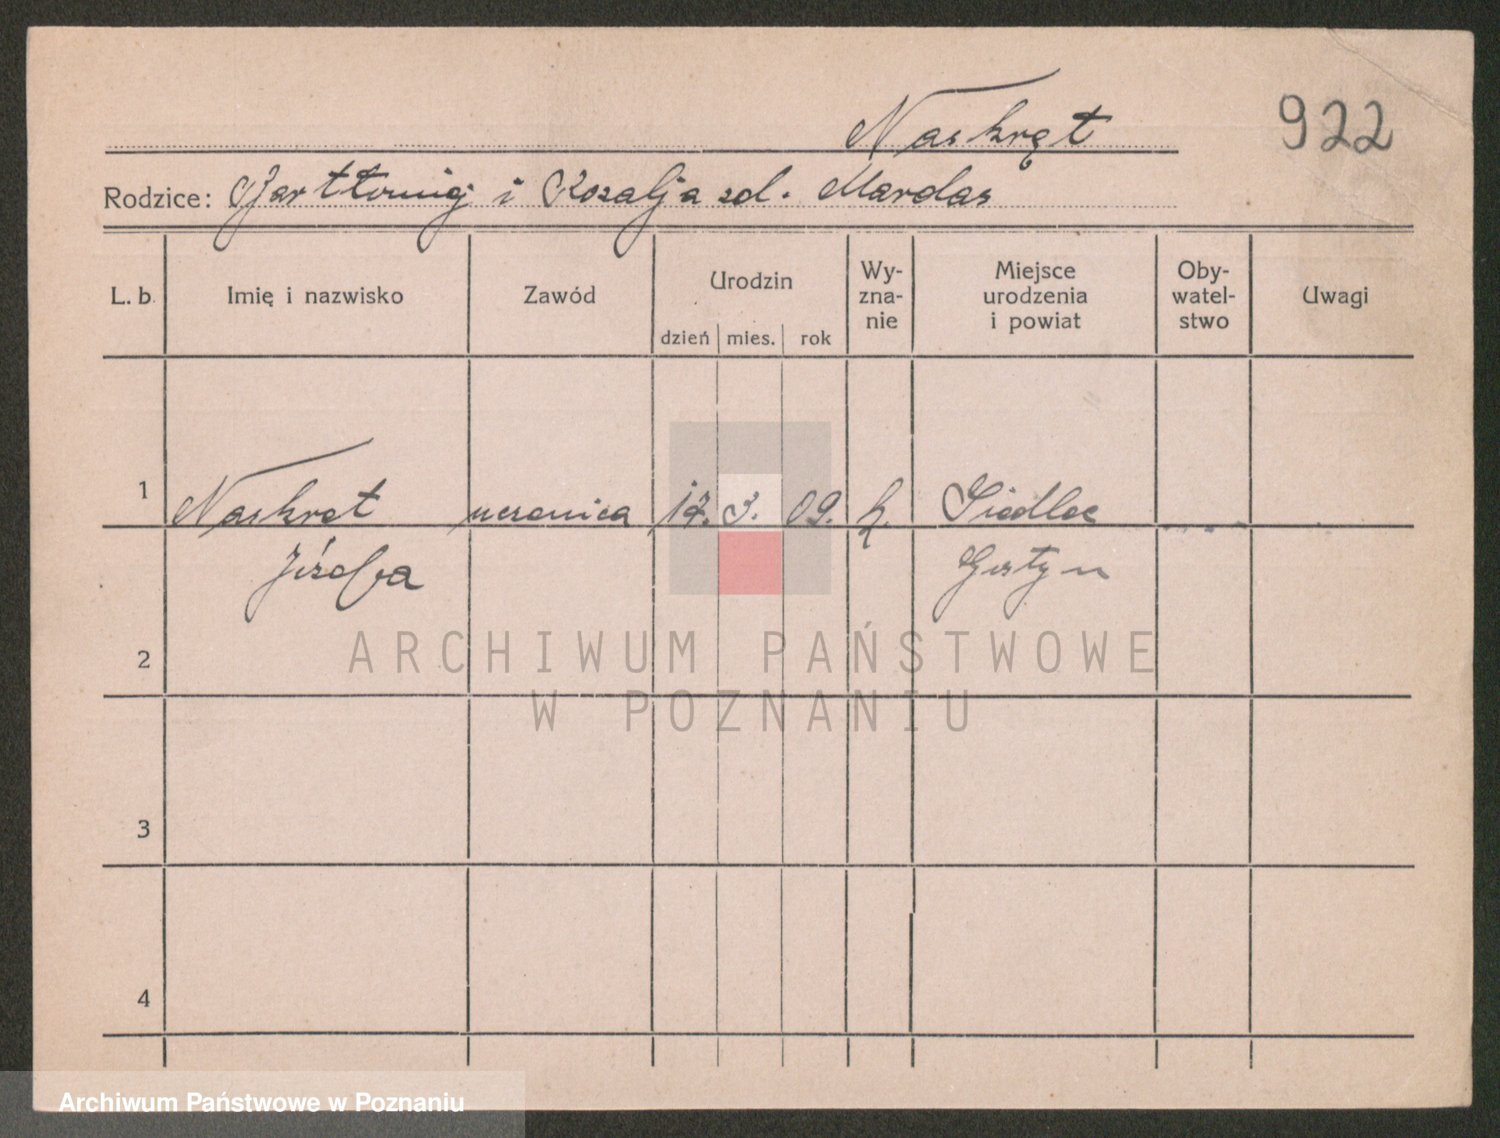 Naskręt
922
Rodzice: Bartłomiej i Rozalja zd. Mardas
L. b. Imię i nazwisko Zawód Urodzin dzień mies. rok Wy-
zna-
nie Miejsce
urodzenia
i powiat Oby-
watel-
stwo Uwagi
1 Naskręt uczenica 17. 3. 09. k. Siedlec
Józefa Gostyn
2
ARCHIWUM PAŃSTWOWE
W POZNANIU
3
4
Archiwum Państwowe w Poznaniu